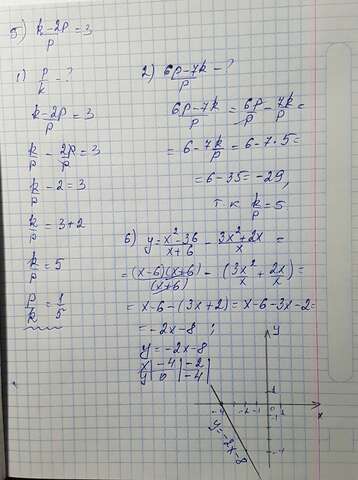 5) (k-2p)/p = 3
1) p/k - ?
(k-2p)/p = 3
k/p - 2p/p = 3
k/p - 2 = 3
k/p = 3+2
k/p = 5
p/k = 1/5
2) (6p-7k)/p - ?
(6p-7k)/p = 6p/p - 7k/p =
= 6 - 7k/p = 6-7·5 =
= 6-35 = -29,
т к k/p = 5
6) y = (x²-36)/(x+6) - (3x²+2x)/x =
= (x-6)(x+6)/(x+6) - (3x²/x + 2x/x) =
= x-6-(3x+2) = x-6-3x-2 =
= -2x-8 ;
y = -2x-8
x | -4 | -2 |
y | 0 | -4 |
y
x
-4 -2 -1 0 1
1
y=-2x-8